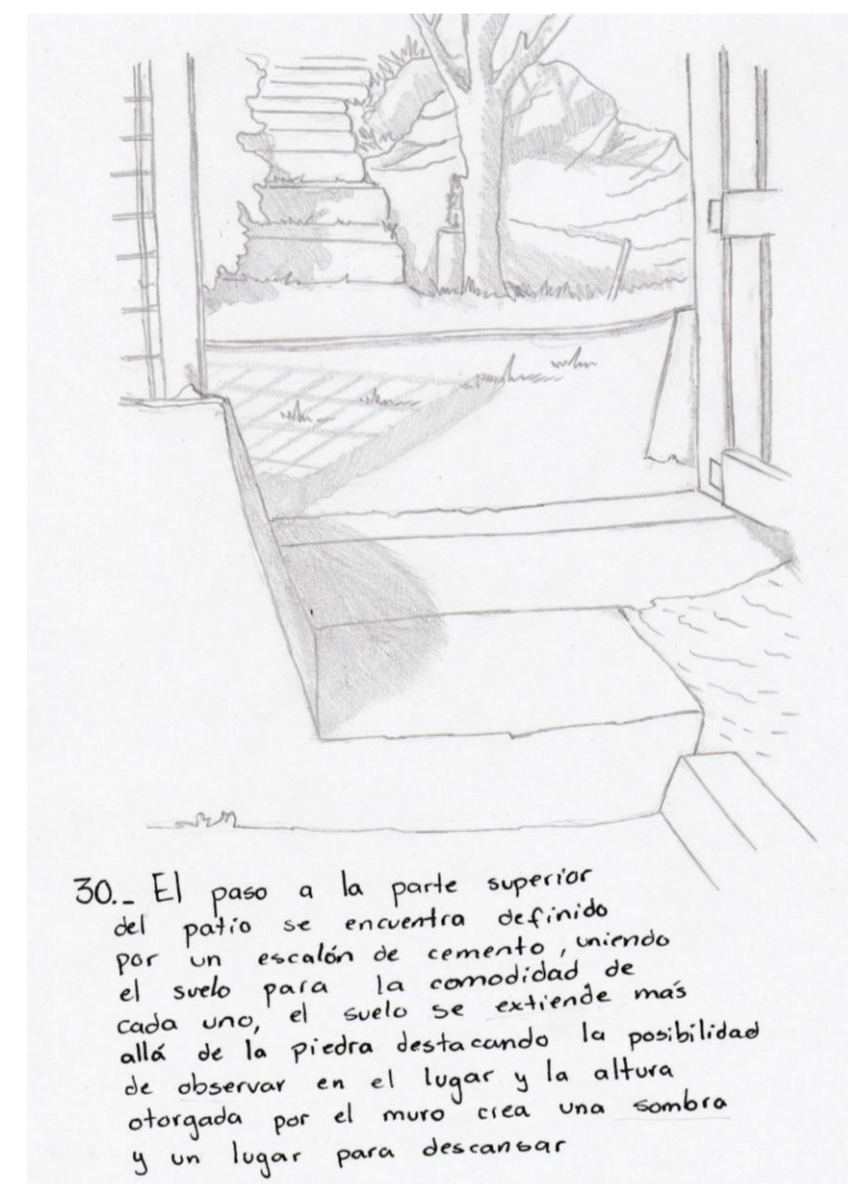 30._ El paso a la parte superior
del patio se encuentra definido
por un escalón de cemento, uniendo
el suelo para la comodidad de
cada uno, el suelo se extiende más
allá de la piedra destacando la posibilidad
de observar en el lugar y la altura
otorgada por el muro crea una sombra
y un lugar para descansar